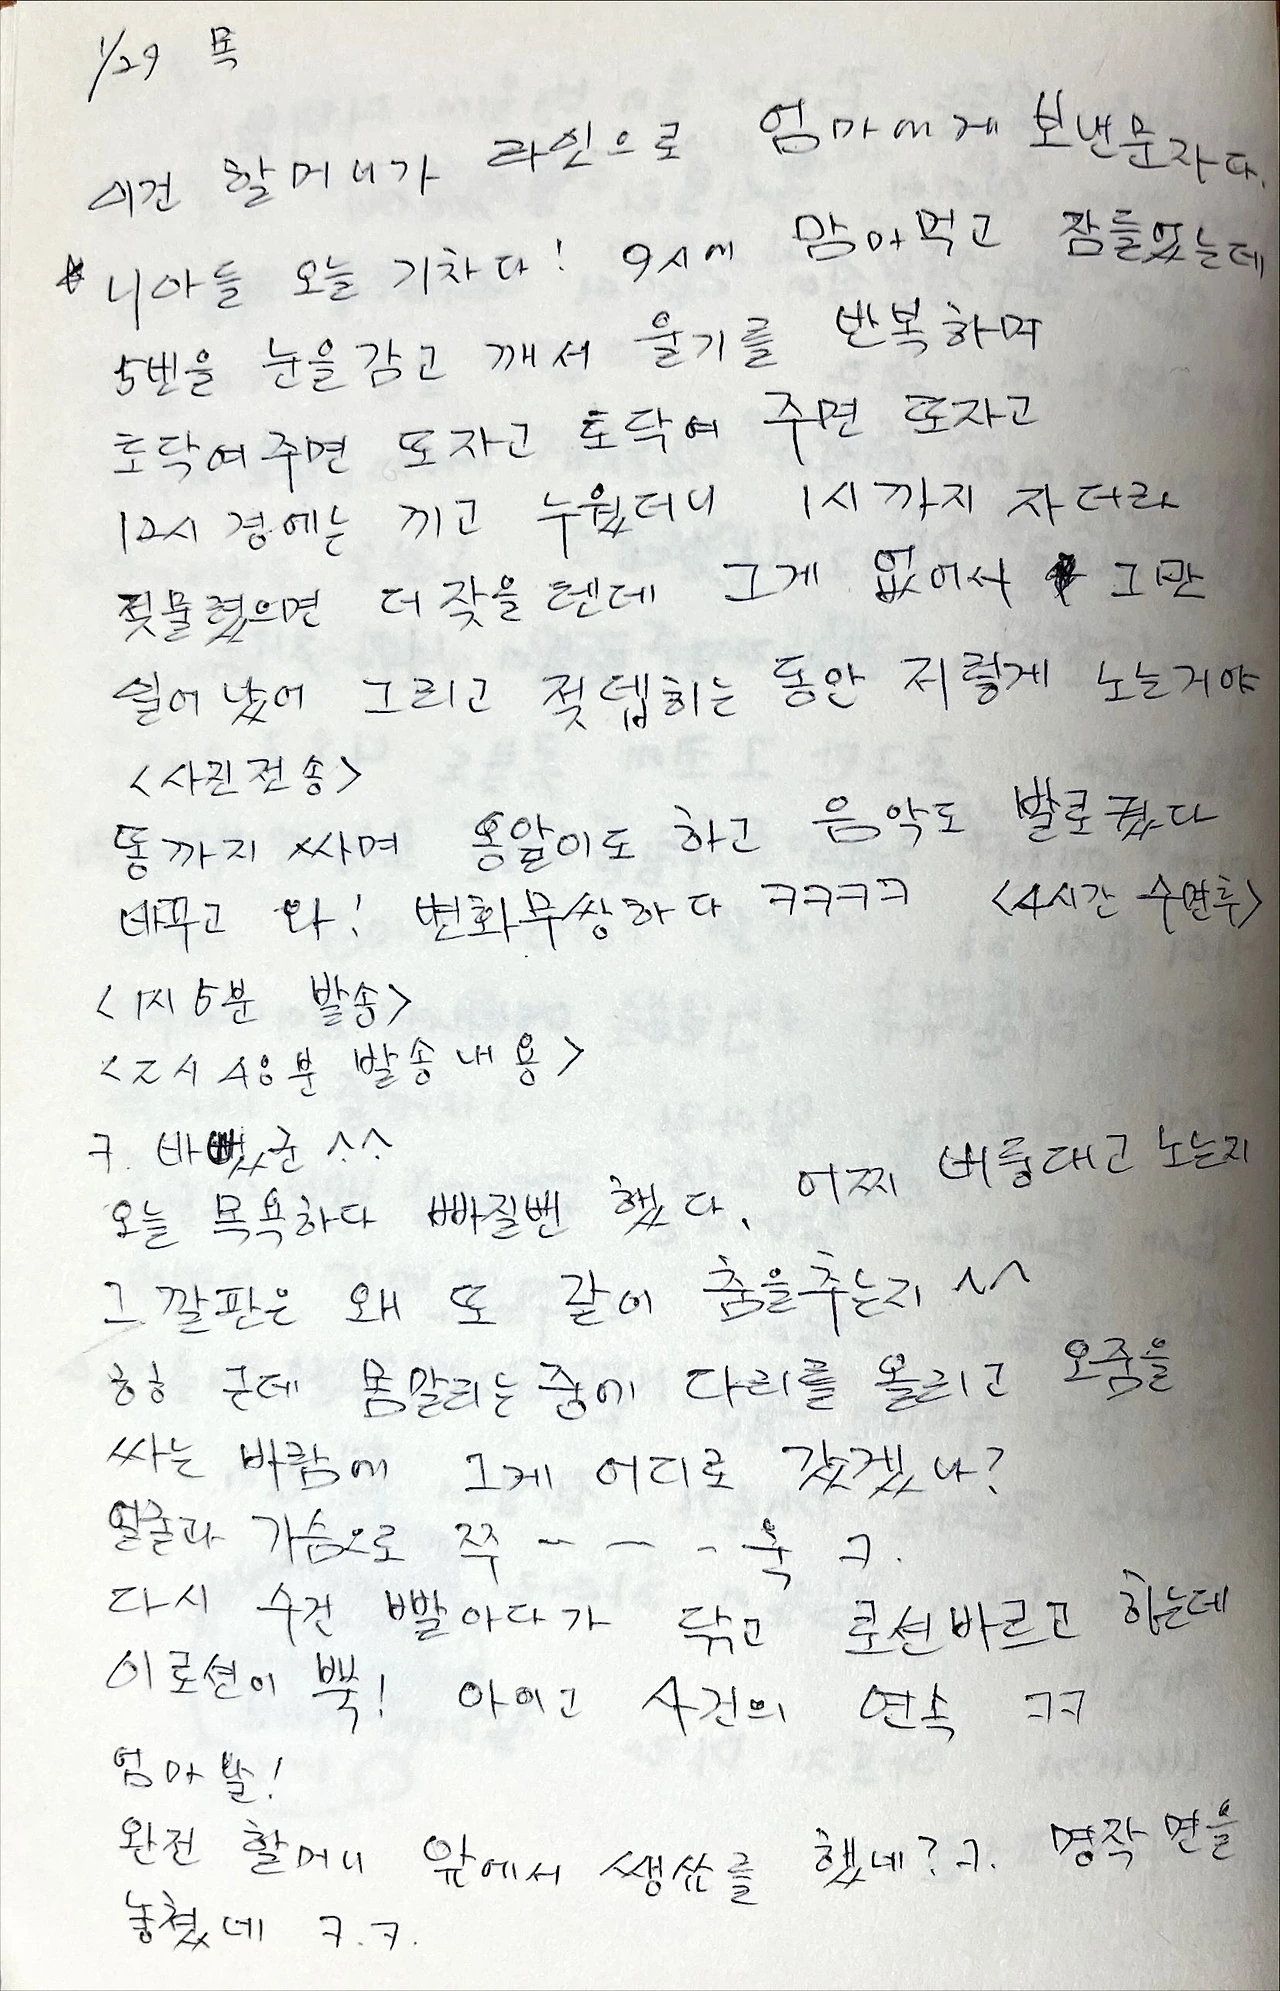 1/29 목
이건 할머니가 라인으로 엄마에게 보낸문자다.
* 니아들 오늘 기차다! 9시에 맘마먹고 잠들었는데
5번을 눈을감고 깨서 울기를 반복하며
토닥여주면 또자고 토닥여 주면 또자고
12시경에는 끼고 누웠더니 1시까지 자더라
젖물렸으면 더잤을텐데 그게 없어서 그만
일어났어 그리고 젖뎁히는동안 저렇게 노는거야
<사진전송>
똥까지 싸며 옹알이도 하고 음악도 발로 줬다
바꾸고 와! 변화무쌍하다 ㅋㅋㅋㅋ <4시간 수면후>
<1시5분 발송>
<2시48분 발송내용>
ㅋ. 바빴군 ^.^
오늘 목욕하다 빠질뻔 했다. 어찌 버둥대고 노는지
그 깔판은 왜 또 같이 춤을추는지 ^^
ㅎㅎ 근데 몸말리는중에 다리를 올리고 오줌을
싸는 바람에 그게 어디로 갔겠나?
얼굴과 가슴으로 쭈 - - - 욱 ㅋ.
다시 수건 빨아다가 닦고 로션바르고 하는데
이로션이 뿍! 아이고 사건의 연속 ㅋㅋ
엄마 왈!
완전 할머니 앞에서 쌩쑈를 했네? ㅋ. 명장면을
놓쳤네 ㅋ.ㅋ.